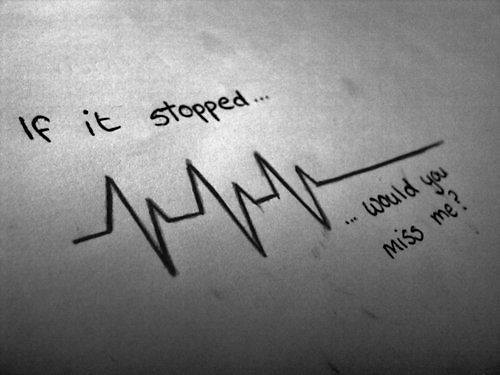 If it stopped...
... would you
miss me?